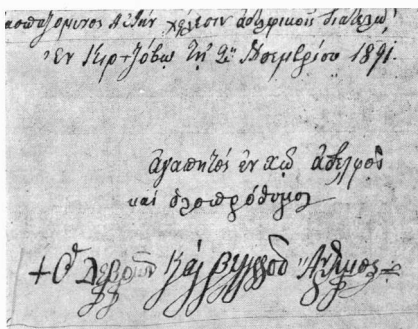 ἀσπαζόμενος Αὐτὴν χείλεσιν ἀδελφικοῖς διατελῶ
Ἐν Κιρτζόβῳ τῇ 2ᾳ Νοεμβρίου 1891.
ἀγαπητὸς ἐν χῷ ἀδελφὸς
καὶ ὁλοπρόθυμος
+ Ὁ Δεβρῶν καὶ Βελεσσῶν Ἄνθιμος